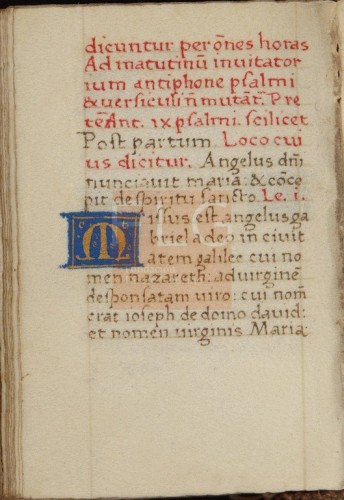 dicuntur per oe͂s horas
Ad matutinũ inuitator
ium antiphone psalmi
& uersiculi nͥ mutãt.͂ Pre
teꝛ̃ Ant. ix psalmi. scilicet
Post partum. Loco cui
us dicitur. Angelus dnĩ
nunciauit mariæ: & cõce
pit de spiritu sancto. Le. i.
Missus est angelus ga
briel a deo in ciuit
atem galilee cui no
men nazareth: ad uirginẽ
desponsatam uiro: cui nom̃
erat ioseph de domo dauid:
et nomen uirginis Maria: